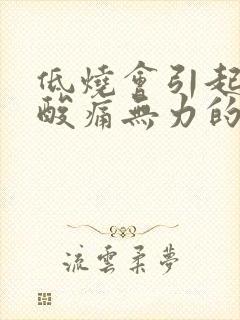 低燒會引起
酸痛無力的
流雲柔夢